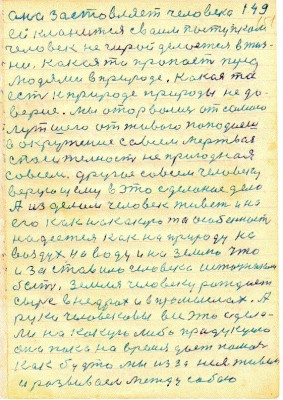 она заставляет человека 149
ей кланится своим поступком
человек не герой делается в жиз-
ни. Какая то пропасть пред
людями в природе. Какая та
есть к природе природы не до-
верие. Мы оторвалися от самого
лутшего от живого поподаем
в окружение совсем мертвая
стоительность не пригодная
совсем. другое совсем человеку
верующему в это сделаное дело
А из делом человек живет и на
его как на какую та особенност
надеется как на природу на
воздух на воду и на землю что
и заставило человека источником
быть. Земля человеку рождает
сырье в недрах и в промыслах. А
руки человековы все это сдела-
ли на какую либо продукцию
она пока на время дает помоч
как будто мы из за нея живем
и развиваем между собою